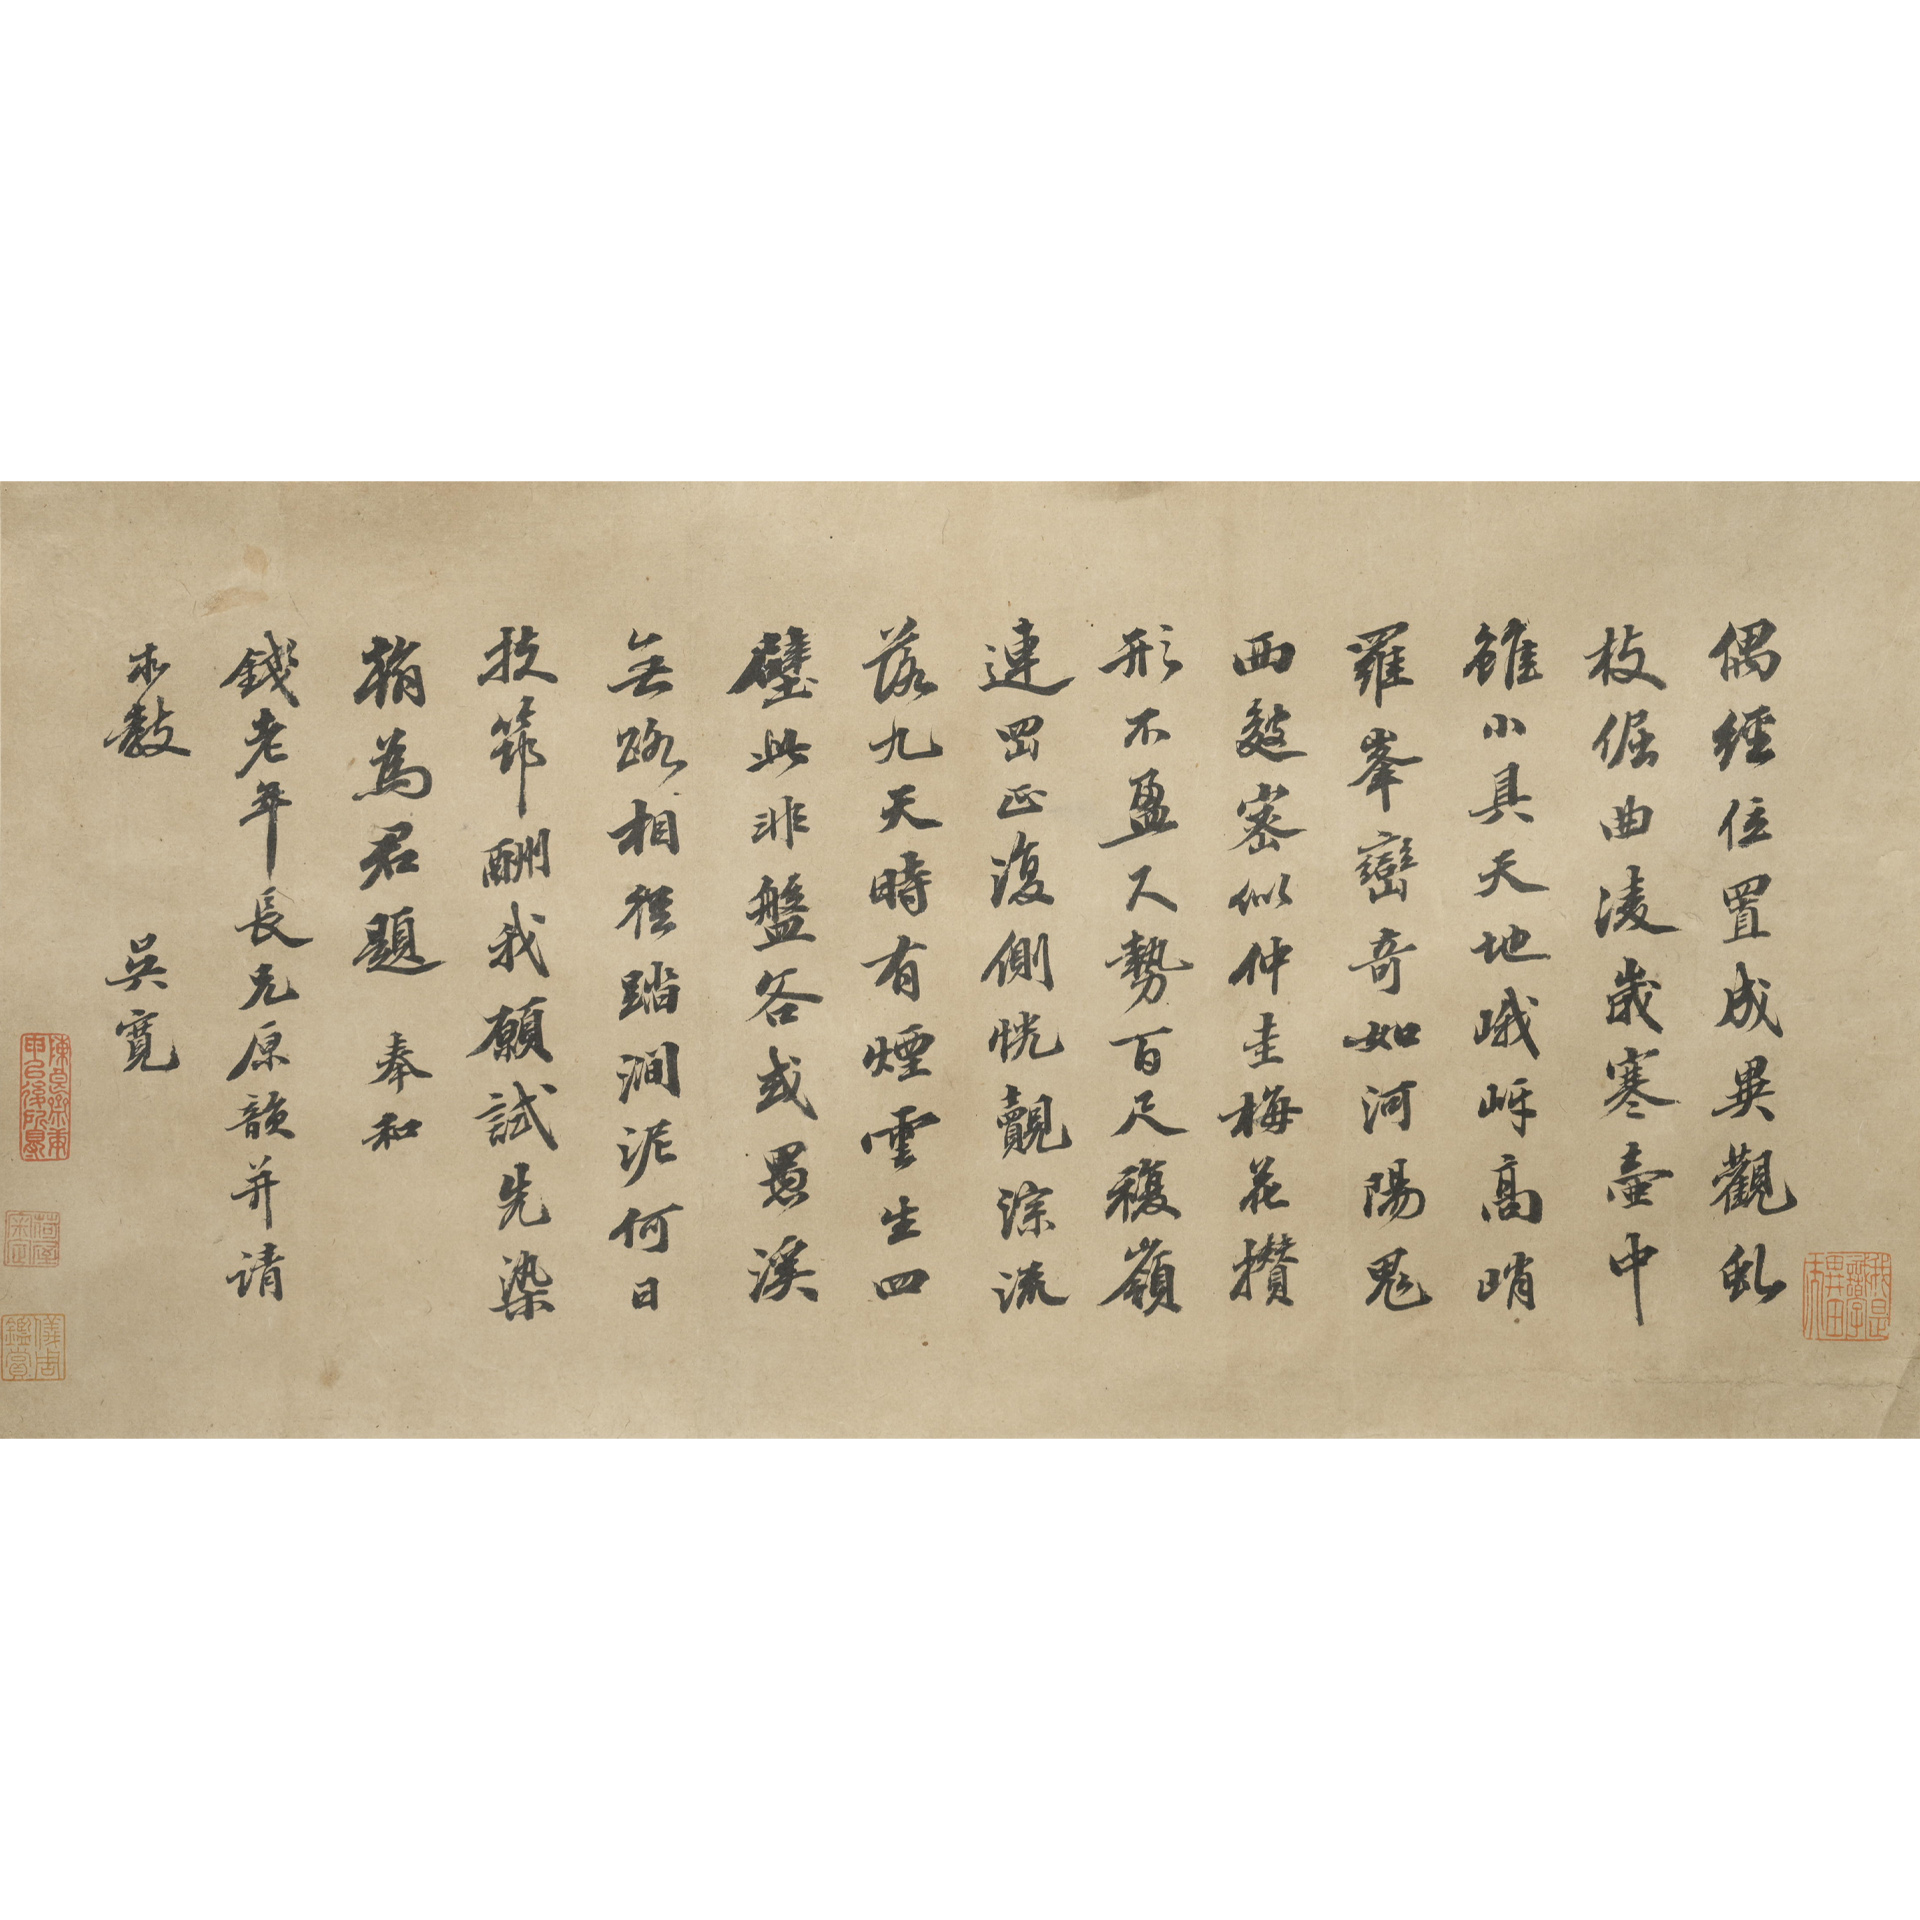 偶經位置成異觀虬
枝倔曲凌歲寒壺中
雖小具天地峨㟎高峭
羅峯巒奇如河陽鬼
面皴密似仲圭梅花攢
形不盈尺勢百尺複嶺
連岡正復側恍覩淙流
落九天時有煙雲生四
壁此非盤谷或愚溪
無路相從踏澗泥何日
扶筇酬我願試先染
翰為君題 奉和
錢老年長兄原韻并請
求教 吳寬